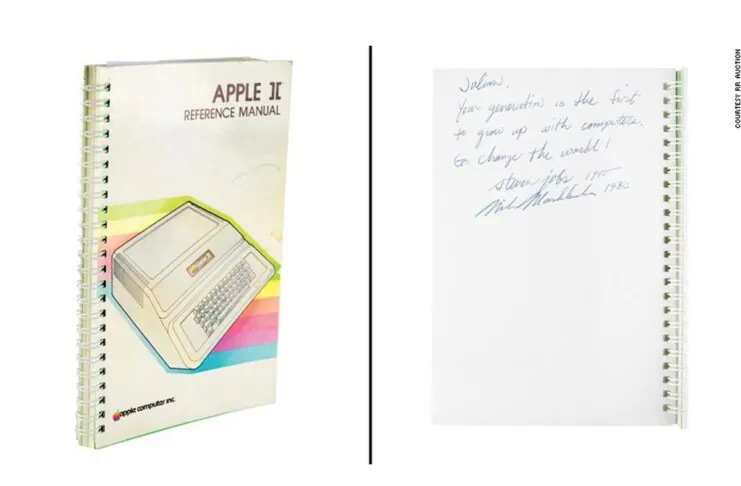 APPLE ][
REFERENCE MANUAL
apple computer inc.
Julian,
Your generation is the first
to grow up with computers.
Go change the world!
steven jobs 1980
1980
COURTESY RR AUCTION